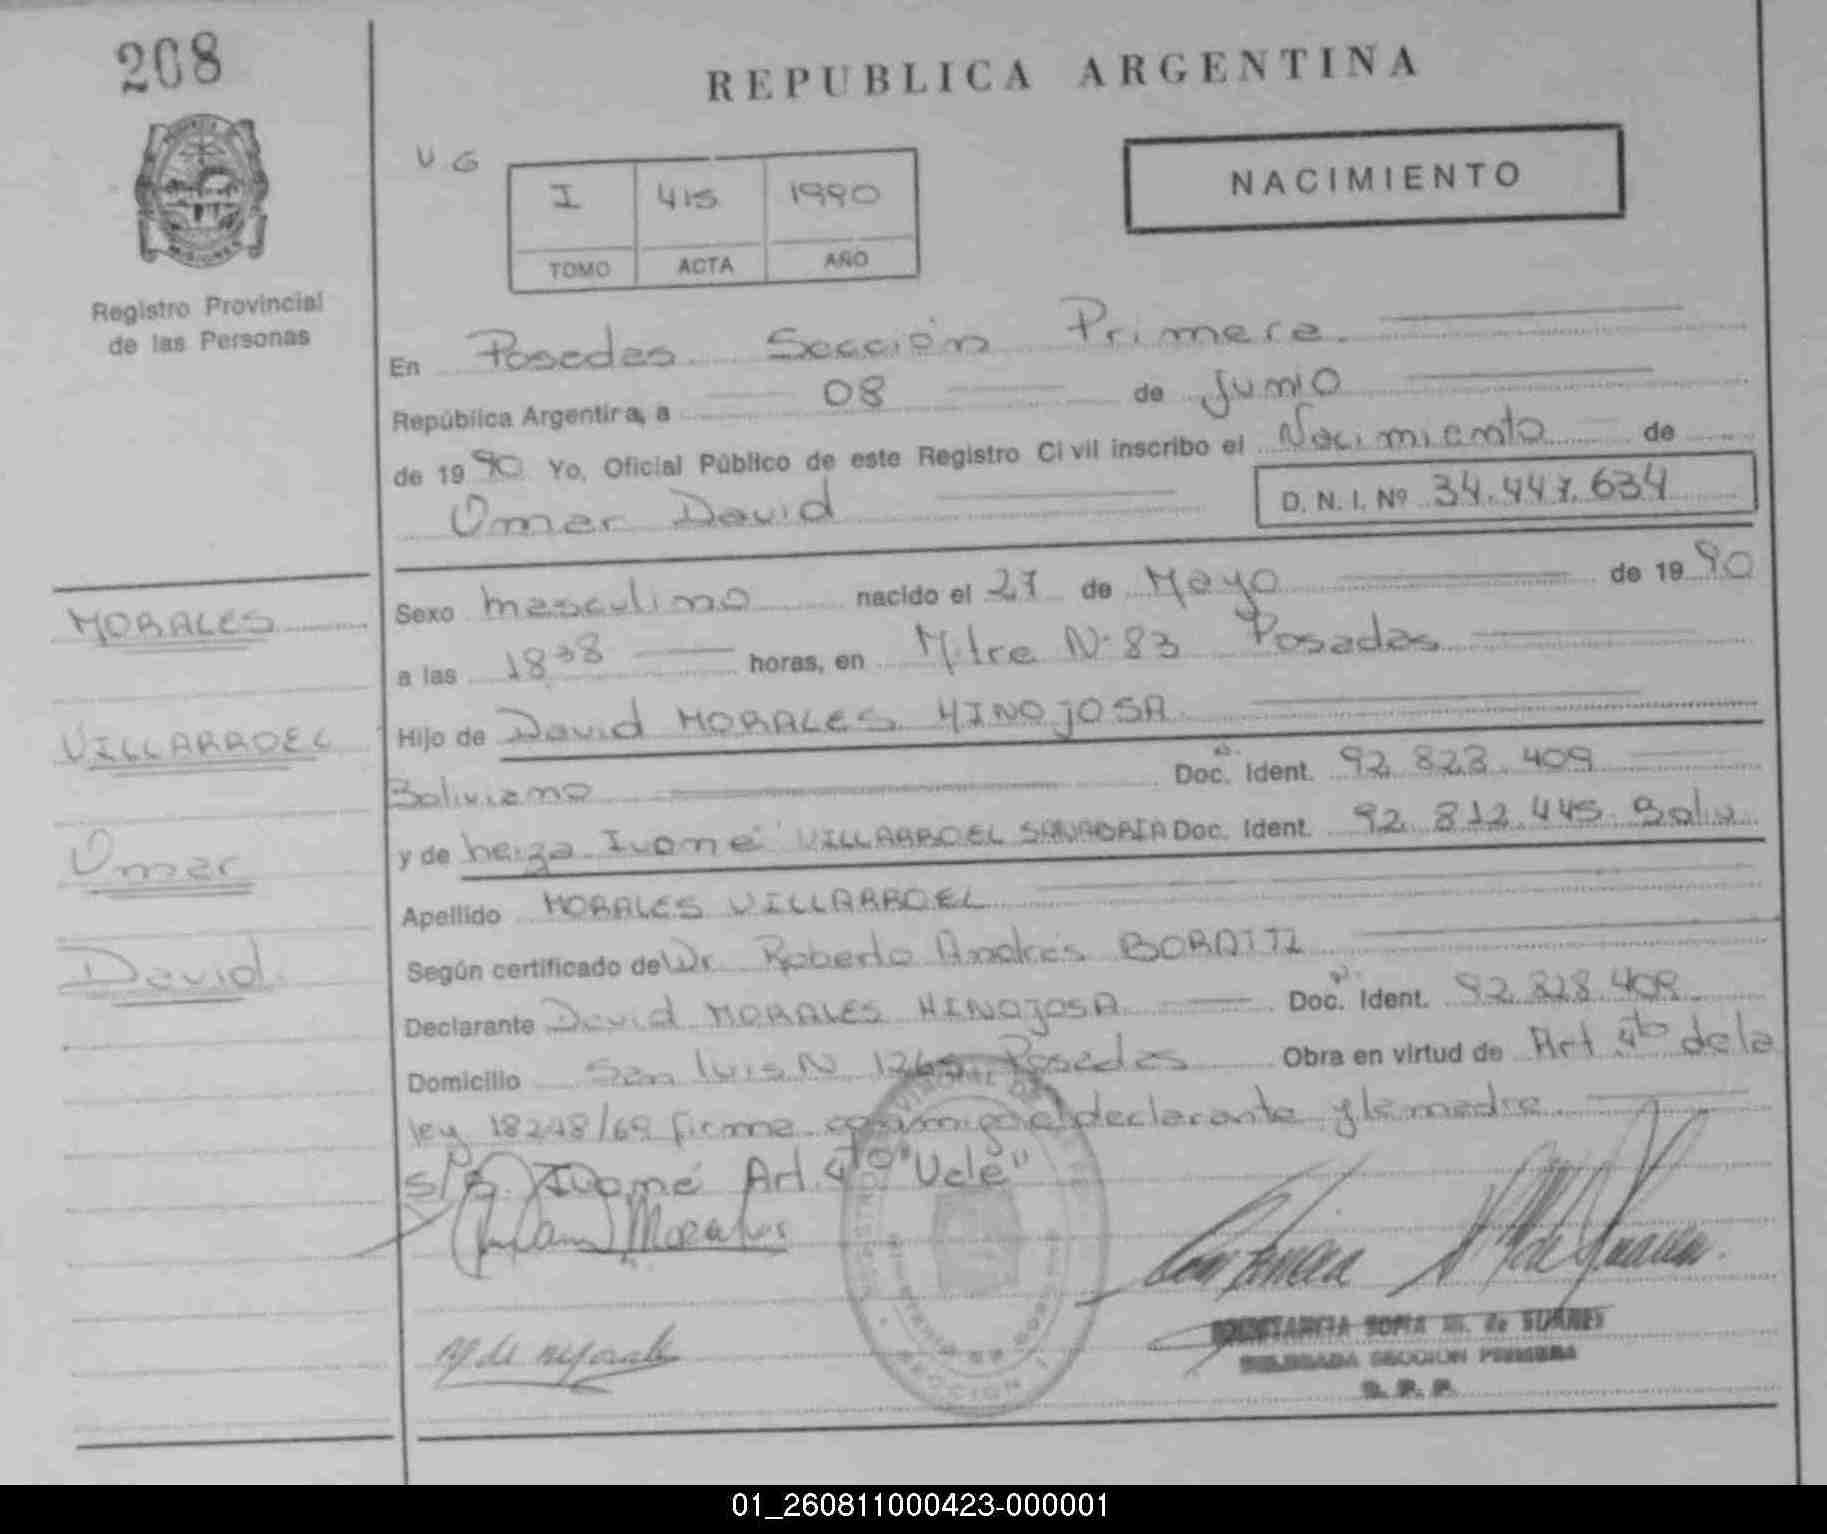 208
REPUBLICA ARGENTINA
V G
I 415 1990
TOMO ACTA AÑO
NACIMIENTO
Registro Provincial
de las Personas
En Posadas Sección Primera.
República Argentina, a 08 de Junio
de 1990 Yo, Oficial Público de este Registro Civil inscribo el Nacimiento de
Omar David D. N. I. Nº 34.447.634
Sexo masculino nacido el 27 de Mayo de 1990
a las 18 38 horas, en Mitre Nº 83 Posadas
Hijo de David MORALES HINOJOSA
Boliviano Doc. Ident. 92.823.409
y de Ivone VILLARROEL SANABRIA Doc. Ident. 92.812.445 Boliv
Apellido MORALES VILLARROEL
Según certificado de Dr. Roberto Andrés
Declarante David MORALES HINOJOSA Doc. Ident. 92.828.409
Domicilio San Luis N 1265 Posadas Obra en virtud de Art 4to de la
ley 18248/69 firma conmigo el declarante y la madre
S/R. Ivoné Art. 4to "Vale"
MORALES
VILLARROEL
Omar
David
CONSTANCIA SOFIA M. de SUAREZ
DELEGADA SECCION PRIMERA
R. P. P.
01_260811000423-000001